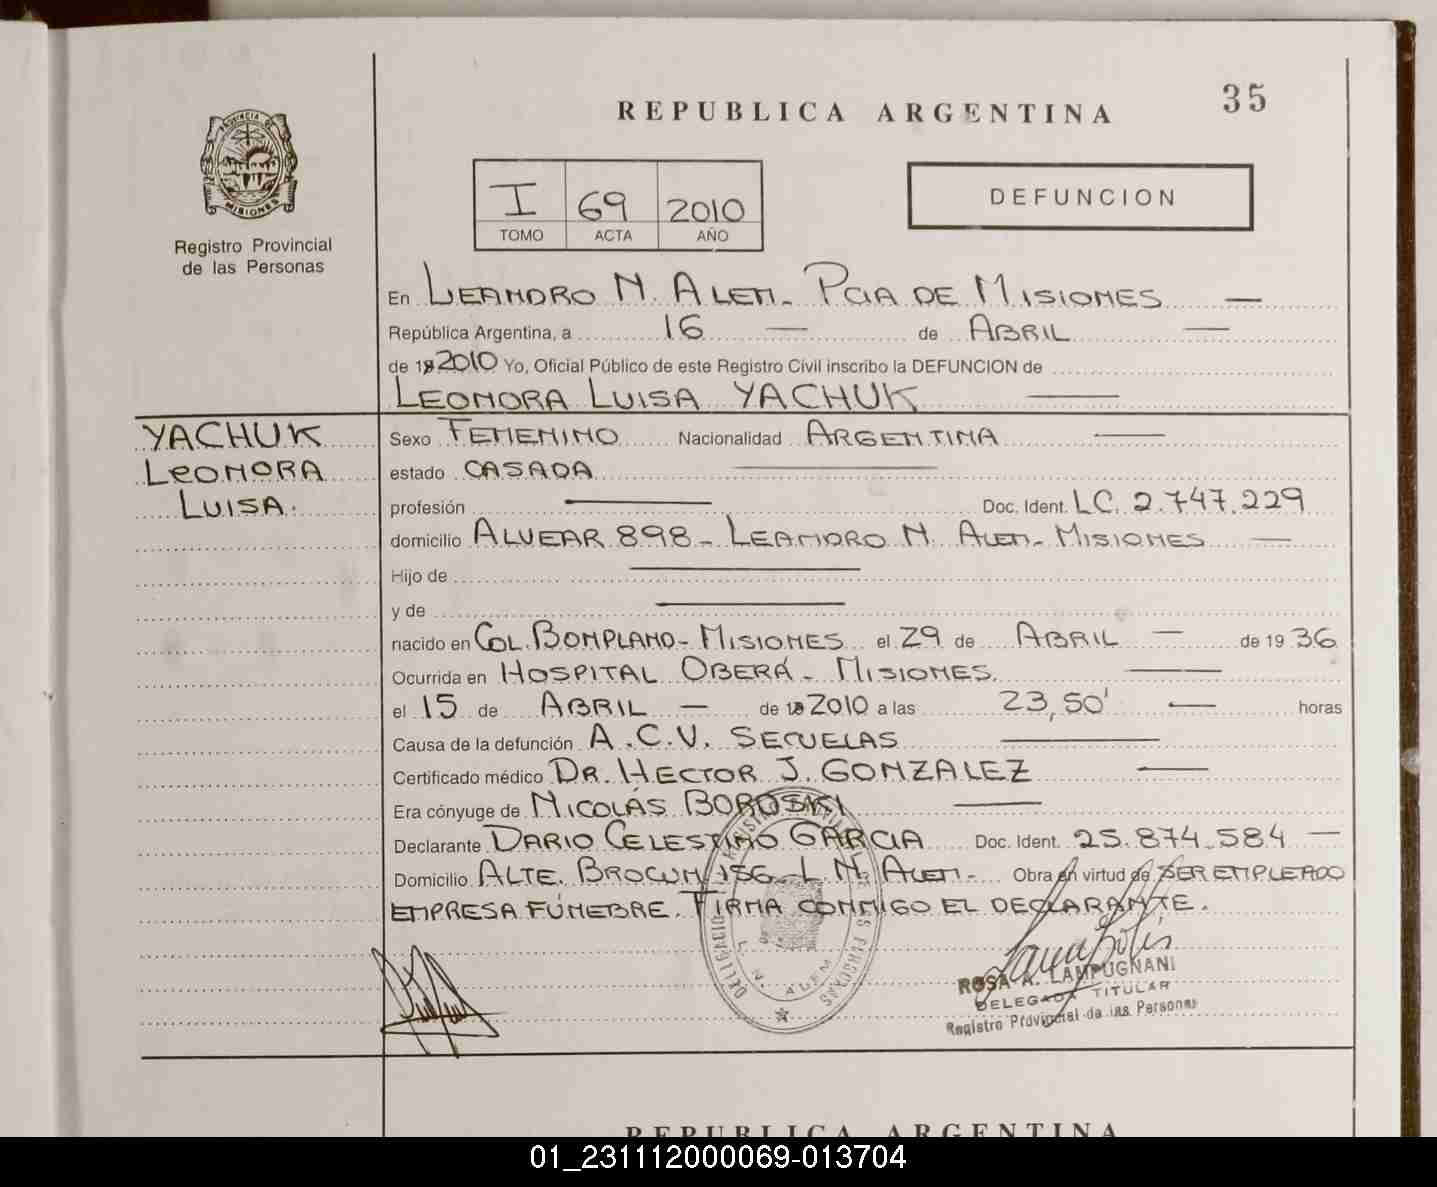 35
REPUBLICA ARGENTINA
PROVINCIA DE
MISIONES
Registro Provincial
de las Personas
I 69 2010
TOMO ACTA AÑO
DEFUNCION
En LEANDRO N. ALEM - PCIA DE MISIONES —
República Argentina, a 16 — de ABRIL —
de 19 2010 Yo, Oficial Público de este Registro Civil inscribo la DEFUNCION de
LEONORA LUISA YACHUK —
YACHUK
LEONORA
LUISA.
Sexo FEMENINO Nacionalidad ARGENTINA —
estado CASADA —
profesión — Doc. Ident. LC. 2.747.229
domicilio ALVEAR 898 - LEANDRO N. ALEM - MISIONES —
Hijo de —
y de —
nacido en COL. BOMPLAND - MISIONES el 29 de ABRIL — de 19 36
Ocurrida en HOSPITAL OBERÁ - MISIONES. —
el 15 de ABRIL — de 19 2010 a las 23,50' — horas
Causa de la defunción A.C.V. SECUELAS —
Certificado médico DR. HECTOR J. GONZALEZ —
Era cónyuge de NICOLÁS BOROSKI —
Declarante DARIO CELESTINO GARCIA Doc. Ident. 25.874.584 —
Domicilio ALTE. BROWN 156 - L. N. ALEM - Obra en virtud de SER EMPLEADO
EMPRESA FÚNEBRE. FIRMA CONMIGO EL DECLARANTE.
L. N. ALEM
ROSA A. LAMPUGNANI
DELEGADA TITULAR
Registro Provincial de las Personas
REPUBLICA ARGENTINA
01_231112000069-013704